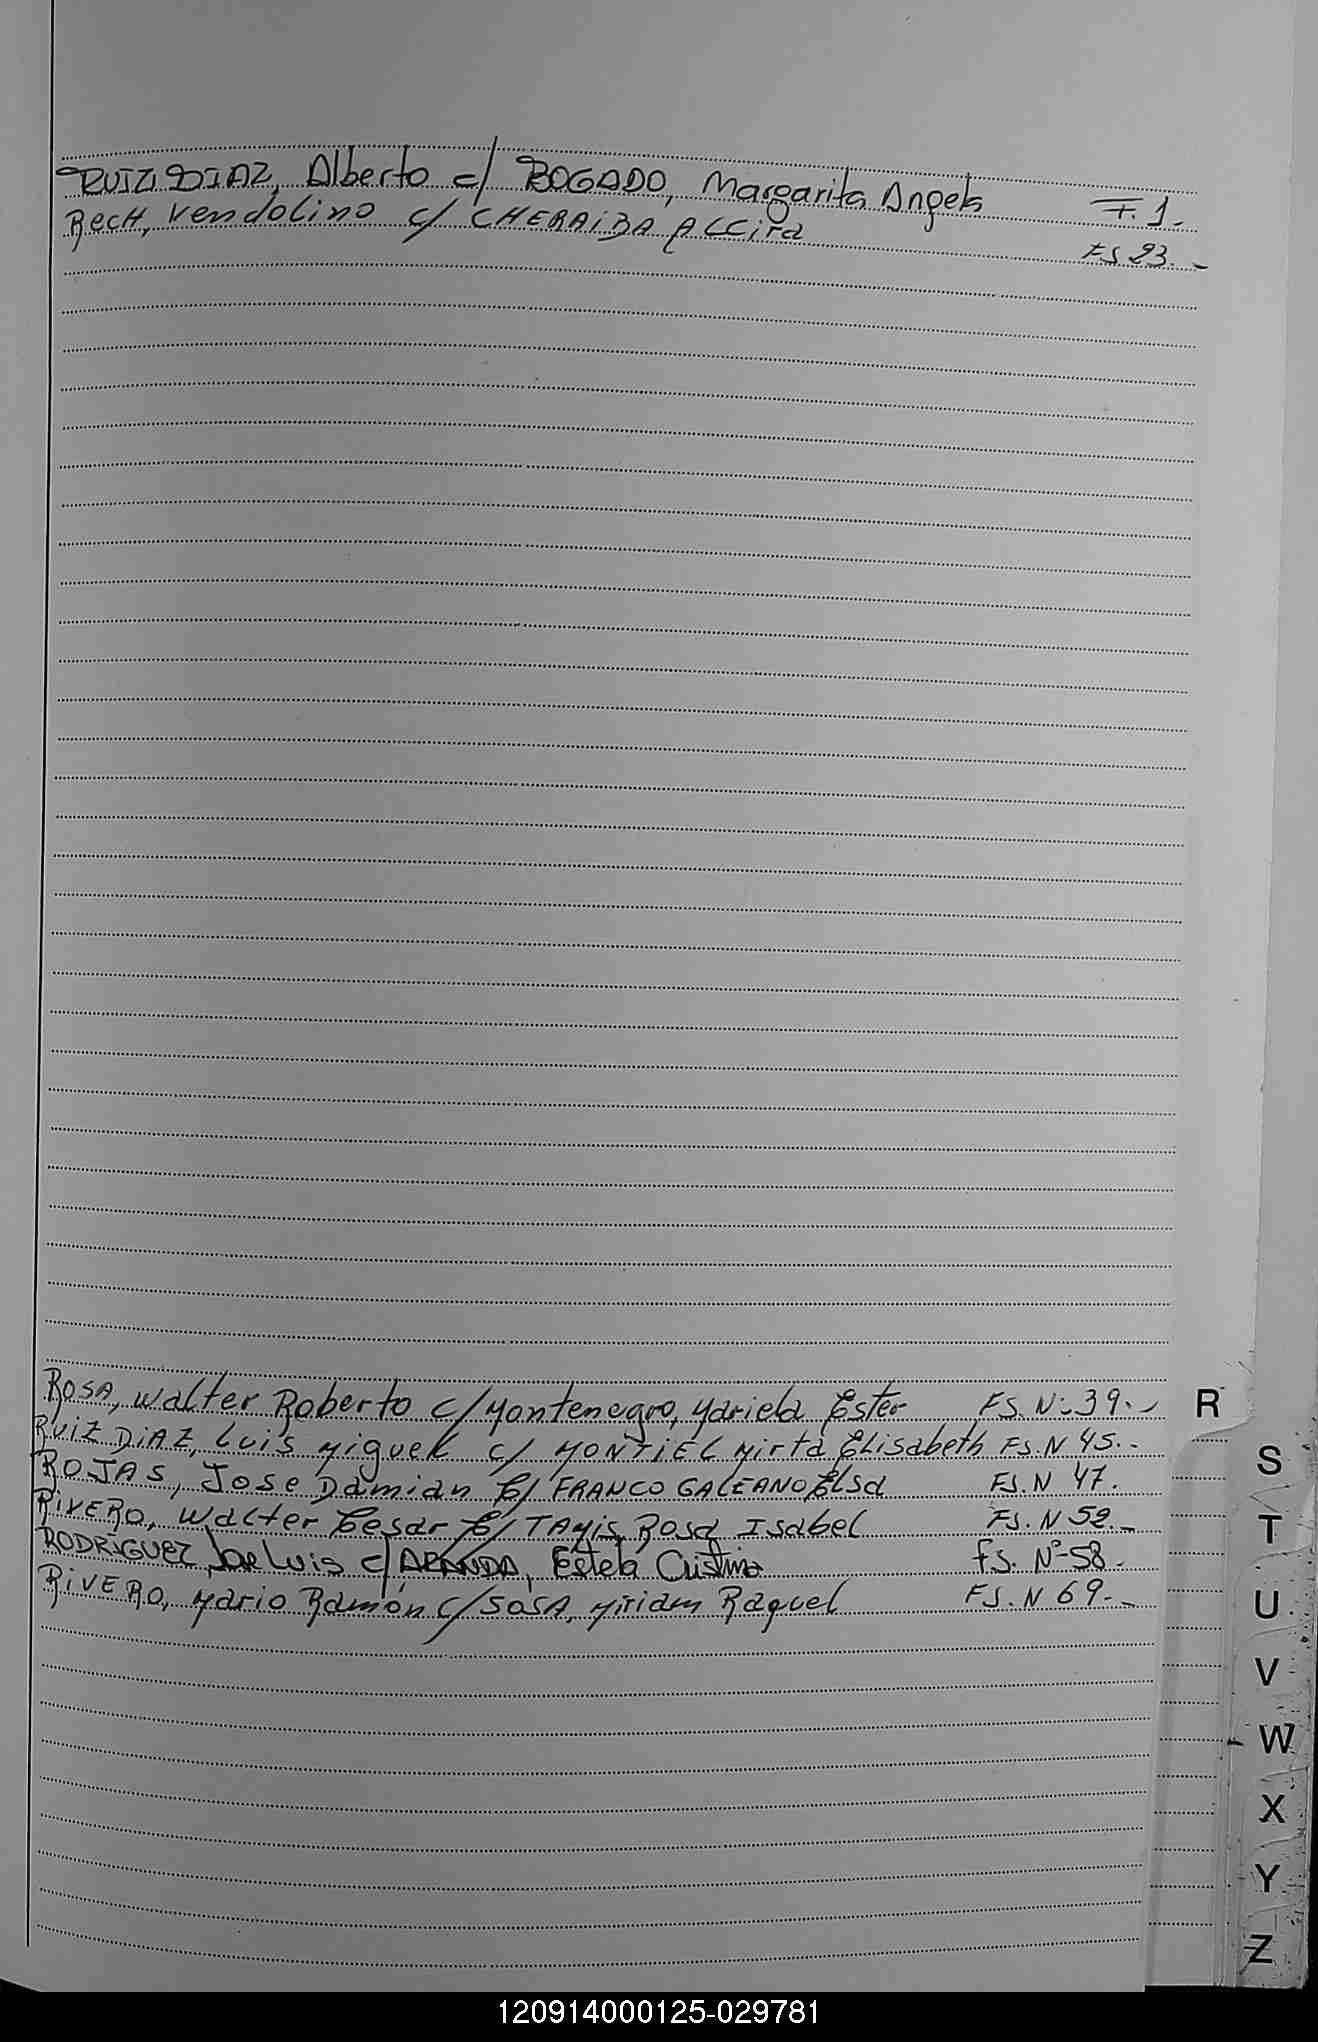 RUIZ DIAZ, Alberto c/ BOGADO, Margarita Angela F. 1.
RecH, Vendolino c/ CHERAIBA ALCira FS 23.-
ROSA, Walter Roberto c/ Montenegro, Mariela Ester FS. N: 39.-
RUIZ DIAZ, Luis Miguel c/ MONTIEL Mirta Elisabeth FS. N 45..
ROJAS, Jose Damian c/ FRANCO GALEANO Elsa FS. N 47.
RIVERO, Walter Cesar c/ Rosa Isabel FS. N 52.-
RODRIGUEZ, Jose Luis c/ ARANDA, Estela Cristina fs. Nº-58.
RIVERO, Mario Ramón c/ SOSA, Miriam Raquel FS. N 69.-
R
S
T
U
V
W
X
Y
Z
120914000125-029781